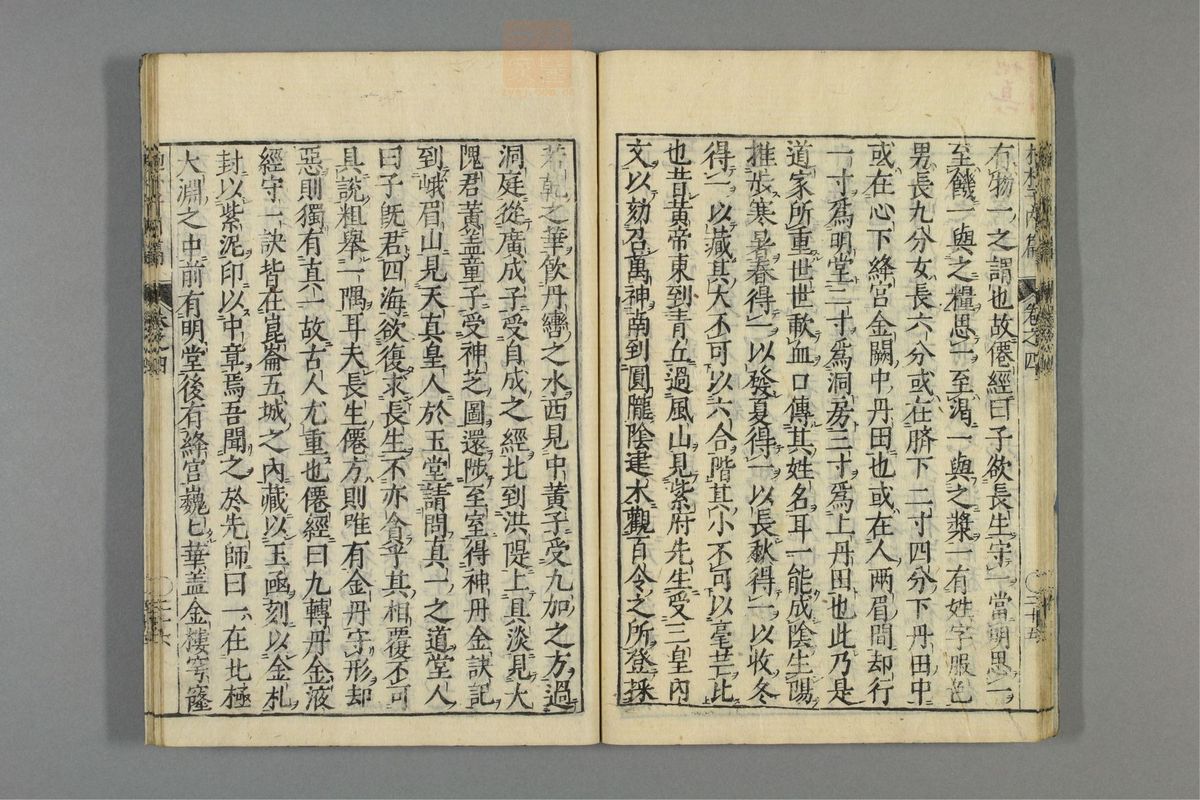 有物一之謂也故僊經曰子欲長生守一當明思一
至饑一與之糧思一至渇一與之漿一有姓字服色
男長九分女長六分或在臍下二寸四分下丹田中
或在心下絳宫金闕中丹田也或在人兩眉間却行
一寸爲明堂二寸爲洞房三寸爲上丹田也此乃是
道家所重世世歃血口傳其姓名耳一能成陰生陽
推張寒暑春得一以發夏得一以長秋得一以收冬
得一以藏其大不可以六合階其小不可以毫芒比
也昔黄帝東到青丘過風山見紫府先生受三皇内
文以劾召萬神南到圓隴陰建木觀百令之所登採
若乾之華飲丹巒之水西見中黄子受九加之方過
洞庭從廣成子受自成之經北到洪隄上具淡見大
隗君黄盖童子受神芝圖還陟至室得神丹金訣記
到峨眉山見天真皇人於玉堂請問真一之道堂人
曰子既君四海欲復求長生不亦貪乎其相覆不可
具說粗舉一隅耳夫長生僊方則唯有金丹守形却
惡則獨有真一故古人尤重也僊經曰九轉丹金液
經守一訣皆在崑崙五城之内藏以玉函刻以金札
封以紫泥印以中章焉吾聞之於先師曰一在北極
大淵之中前有明堂後有絳宫巍匕華盖金樓穹窿
卷之四